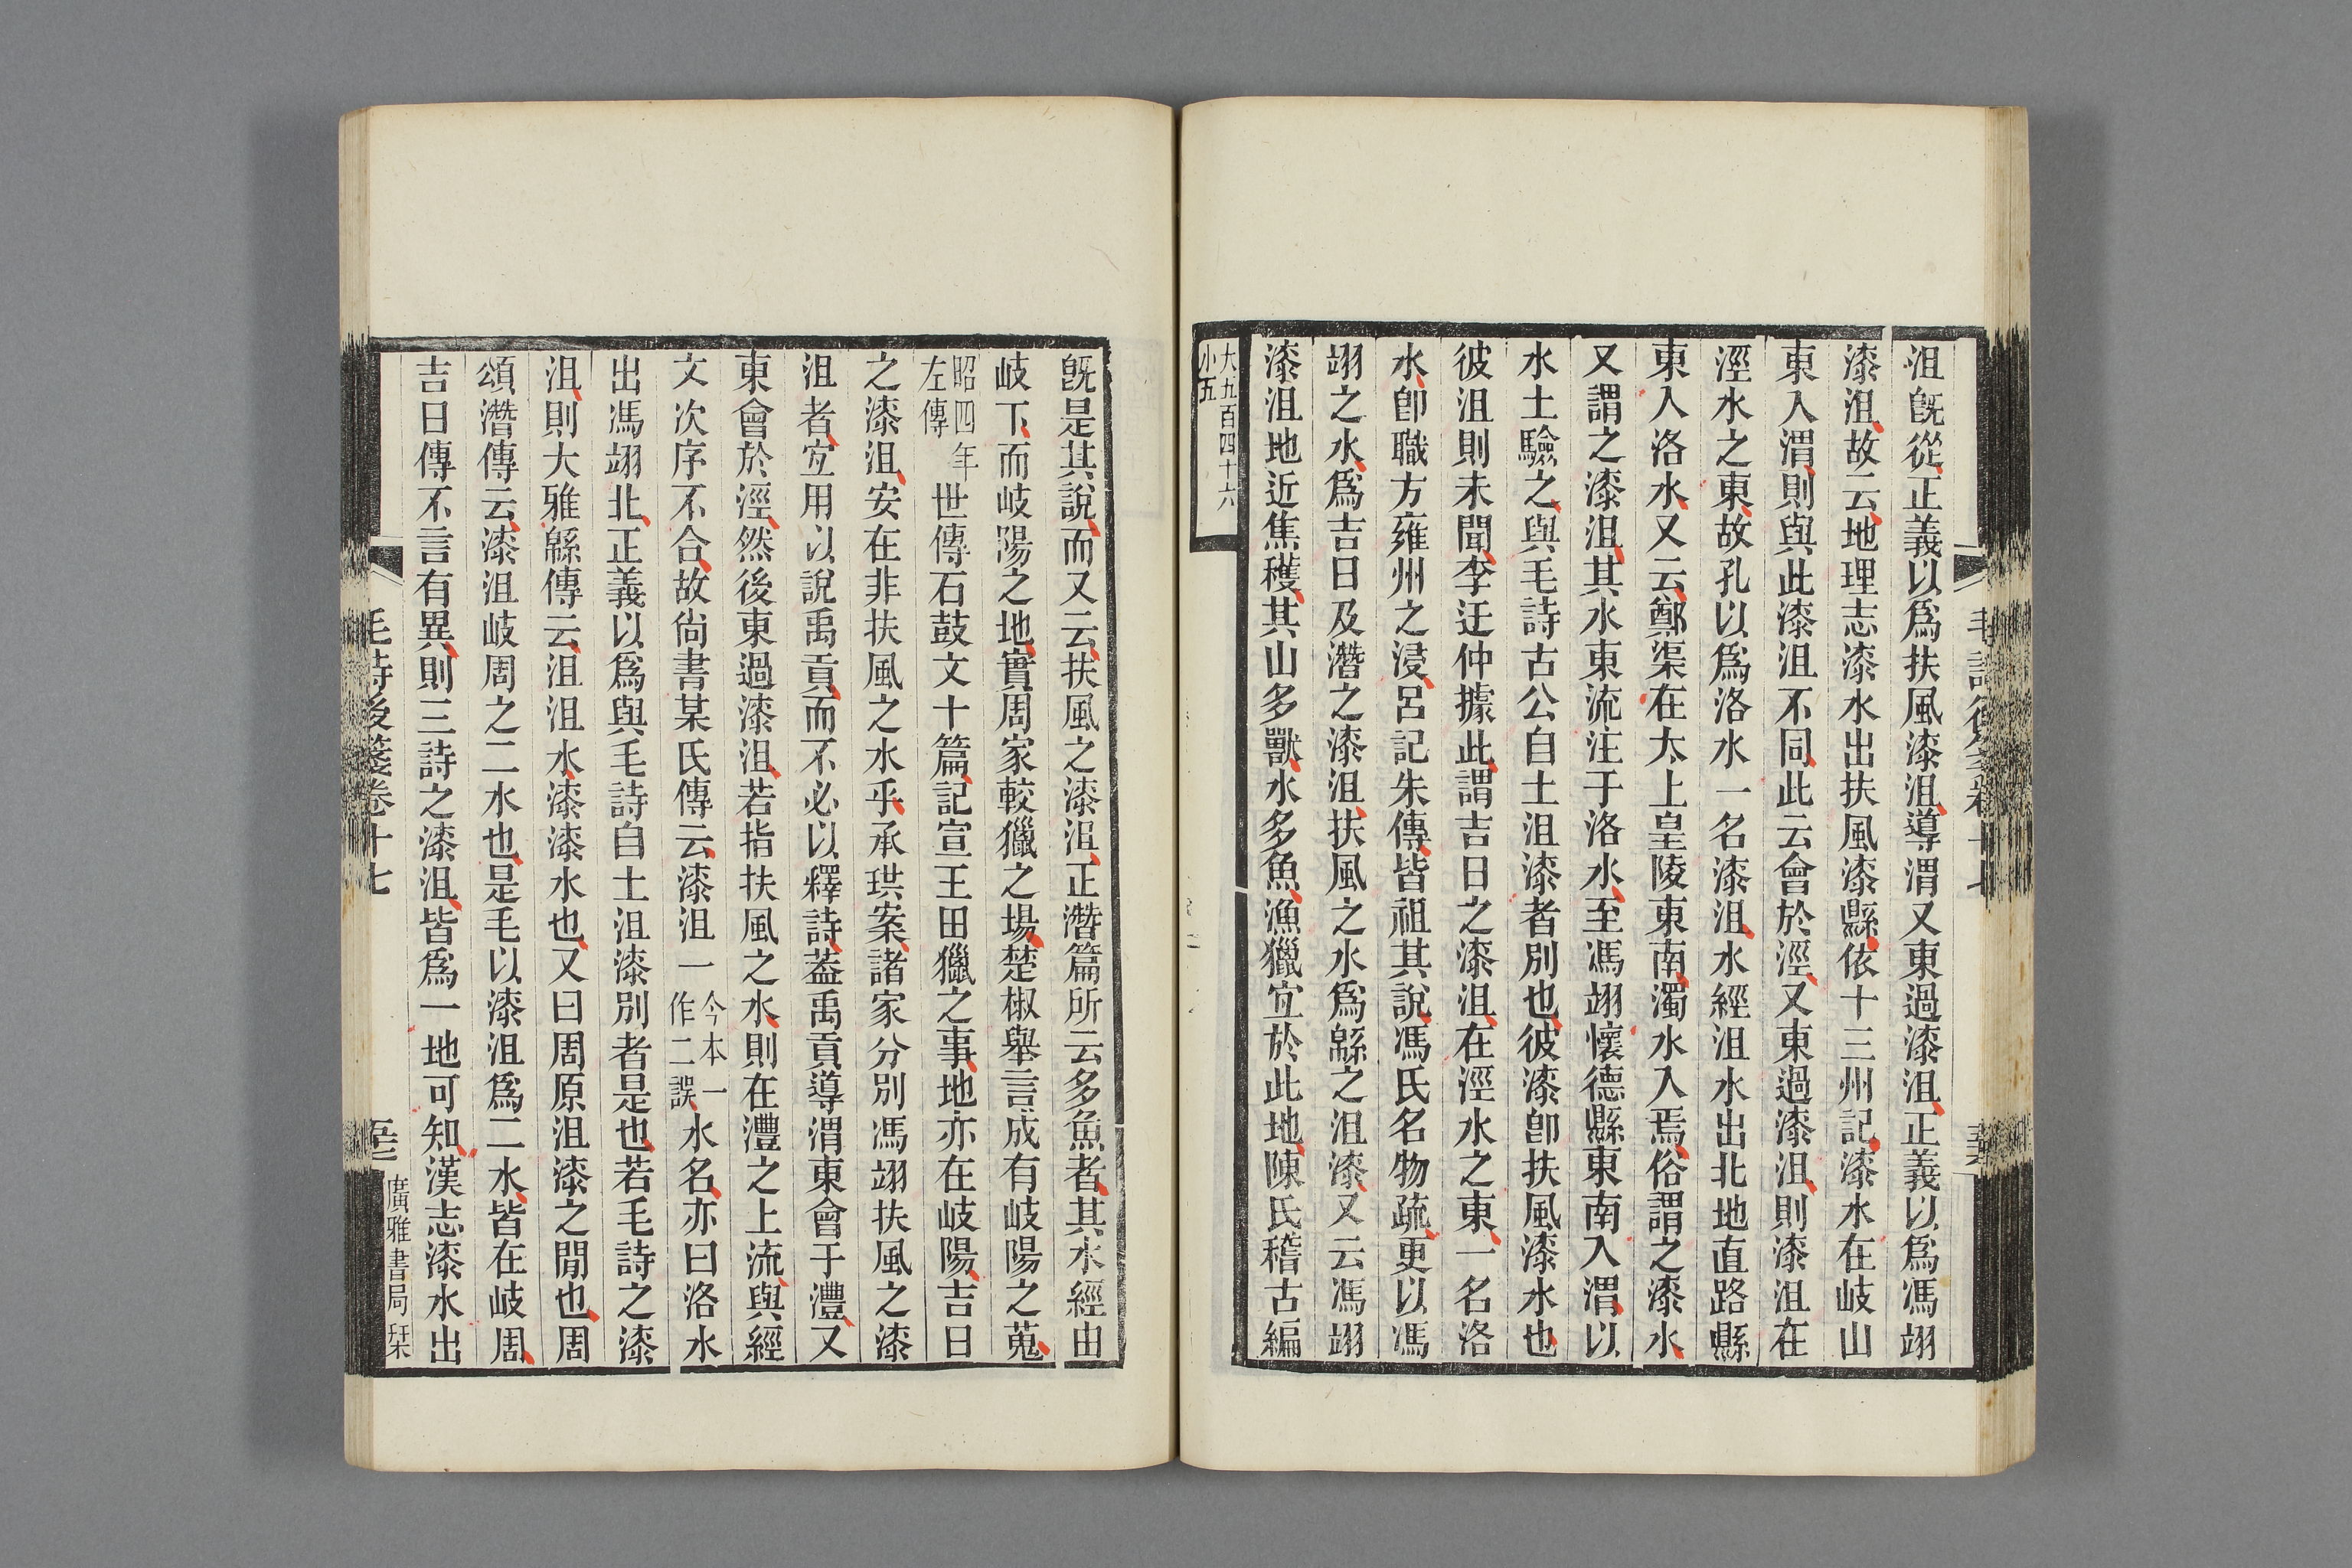 沮既從正義以爲扶風漆沮導渭又東過漆沮正義以爲馮翊
漆沮故云地理志漆水出扶風漆縣依十三州記漆水在岐山
東入渭則與此漆沮不同此云會於涇又東過漆沮則漆沮在
涇水之東故孔以爲洛水一名漆沮水經沮水出北地直路縣
東入洛水又云鄭渠在太上皇陵東南濁水入焉俗謂之漆水
又謂之漆沮其水東流注于洛水至馮翊懷德縣東南入渭以
水土驗之與毛詩古公自土沮漆者別也彼漆卽扶風漆水也
彼沮則未聞李迂仲據此謂吉日之漆沮在涇水之東一名洛
水卽職方雍州之浸呂記朱傳皆祖其說馮氏名物疏更以馮
翊之水爲吉日及濳之漆沮扶風之水爲緜之沮漆又云馮翊
漆沮地近焦穫其山多獸水多魚漁獵宜於此地陳氏稽古編
大九百四十六
小五
旣是其說而又云扶風之漆沮正濳篇所云多魚者其水經由
岐下而岐陽之地實周家較獵之場楚椒舉言成有岐陽之蒐
昭四年
左傳
世傳石鼓文十篇記宣王田獵之事地亦在岐陽吉日
之漆沮安在非扶風之水乎承珙案諸家分別馮翊扶風之漆
沮者宜用以說禹貢而不必以釋詩葢禹貢導渭東會于灃又
東會於涇然後東過漆沮若指扶風之水則在灃之上流與經
文次序不合故尙書某氏傳云漆沮一
今本一
作二誤
水名亦曰洛水
出馮翊北正義以爲與毛詩自土沮漆別者是也若毛詩之漆
沮則大雅緜傳云沮沮水漆漆水也又曰周原沮漆之閒也周
頌濳傳云漆沮岐周之二水也是毛以漆沮爲二水皆在岐周
吉日傳不言有異則三詩之漆沮皆爲一地可知漢志漆水出
毛詩後箋卷十七
廣雅書局栞